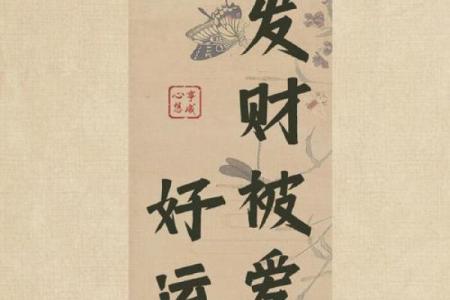 发财被爱
好运
心想事成